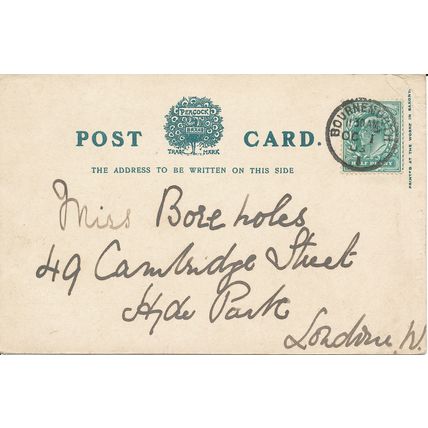 PEACOCK
BRAND
TRADE MARK
POST CARD.
THE ADDRESS TO BE WRITTEN ON THIS SIDE
BOURNEMOUTH
HALFPENNY
PRINTED AT THE WORKS IN SAXONY.
Miss Boreholes
49 Cambridge Street
Hyde Park
London. W.